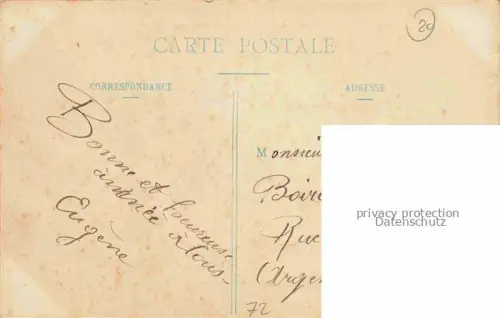 CARTE POSTALE
20
CORRESPONDANCE
ADRESSE
Bonne et heureuse
année à tous
Eugène
Monsieu
Boir
Rue
Argen
72
privacy protection
Datenschutz